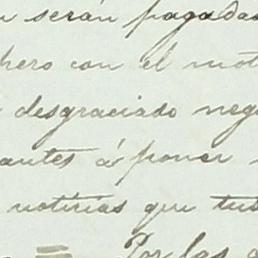 serán pagadas
pero con el mot
desgraciado neg
antes á poner
noticias que tu
Por las